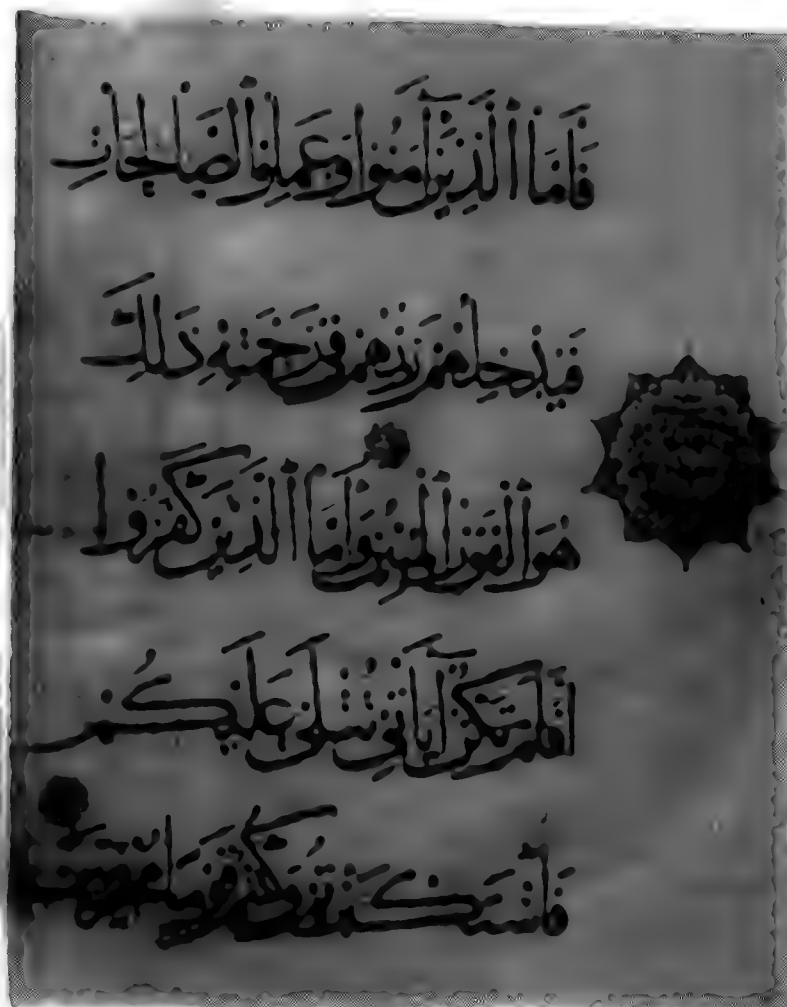 فَأَمَّا الَّذِينَ آمَنُوا وَعَمِلُوا الصَّالِحَاتِ
فَيُدْخِلُهُمْ رَبُّهُمْ فِي رَحْمَتِهِ ذَلِكَ
هُوَ الْفَوْزُ الْمُبِينُ وَأَمَّا الَّذِينَ كَفَرُوا
أَفَلَمْ تَكُنْ آيَاتِي تُتْلَى عَلَيْكُمْ
فَاسْتَكْبَرْتُمْ وَكُنْتُمْ قَوْمًا مُجْرِمِينَ